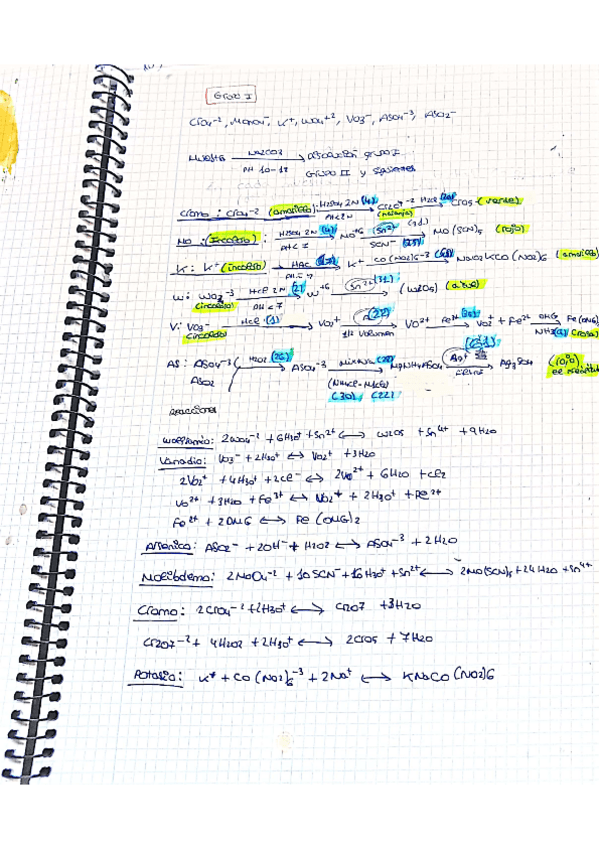 Grupo I
CrO4-2, MoO4-, K+, WO4+2, VO3-, AsO4-3, AsO2-
Na2CO3 disolución grupo I
PH 10-12 Grupo II y siguientes
Cromo: CrO4-2 (amarillo) H2SO4 2N (4) PH<2N Cr2O7-2 (naranja) H2O2 (26) CrO5 (verde)
Mo: (Incoloro): H2SO4 2N (4) PH<2 Mo+6 (Sn2+) (1d.) SCN- (25) Mo(SCN)5 (rojo)
K: K+ (incoloro) HAc K+ CO(NO2)6-3 Na2KCO(NO2)6 (amarillo)
W: WO4-3 (incoloro) HCl 2N (2) PH<7 W+6 Sn2+ (31) (W2O5) (azul)
V: VO3- (incoloro) HCl (1) VO2+ 1/2 volumen VO2+ Fe3+ VO2+ + Fe2+ DMG NH3 Fe(DMG) (rosa)
AS: ASO4-3 H2O2 (26) ASO4-3 Mix Mg MgNH4ASO4 Ag+ Ag3ASO4 (rojo)
ASO2 (NH4Cl-MgCl2) (30) (22)
reacciones
Wolframio: 2WO4-2 + 6H3O+ + Sn2+ ⟷ W2O5 + Sn4+ + 9H2O
Vanadio: VO3- + 2H3O+ ⟷ VO2+ + 3H2O
2VO2+ + 4H3O+ + 2Cl- ⟷ 2VO2+ + 6H2O + Cl2
VO2+ + 3H2O + Fe3+ ⟷ VO2+ + 2H3O+ + Fe2+
Fe2+ + 2DMG ⟷ Fe(DMG)2
Arsenico: ASO2- + 2OH- + H2O2 ⟷ ASO4-3 + 2H2O
Molibdeno: 2MoO4-2 + 10SCN- + 16H3O+ + Sn2+ ⟷ 2MO(SCN)5 + 24H2O + Sn4+
Cromo: 2CrO4-2 + 2H3O+ ⟷ Cr2O7 + 3H2O
Cr2O7-2 + 4H2O2 + 2H3O+ ⟷ 2CrO5 + 7H2O
Potasio: K+ + CO(NO2)6-3 + 2Na+ ⟷ KNaCO(NO2)6